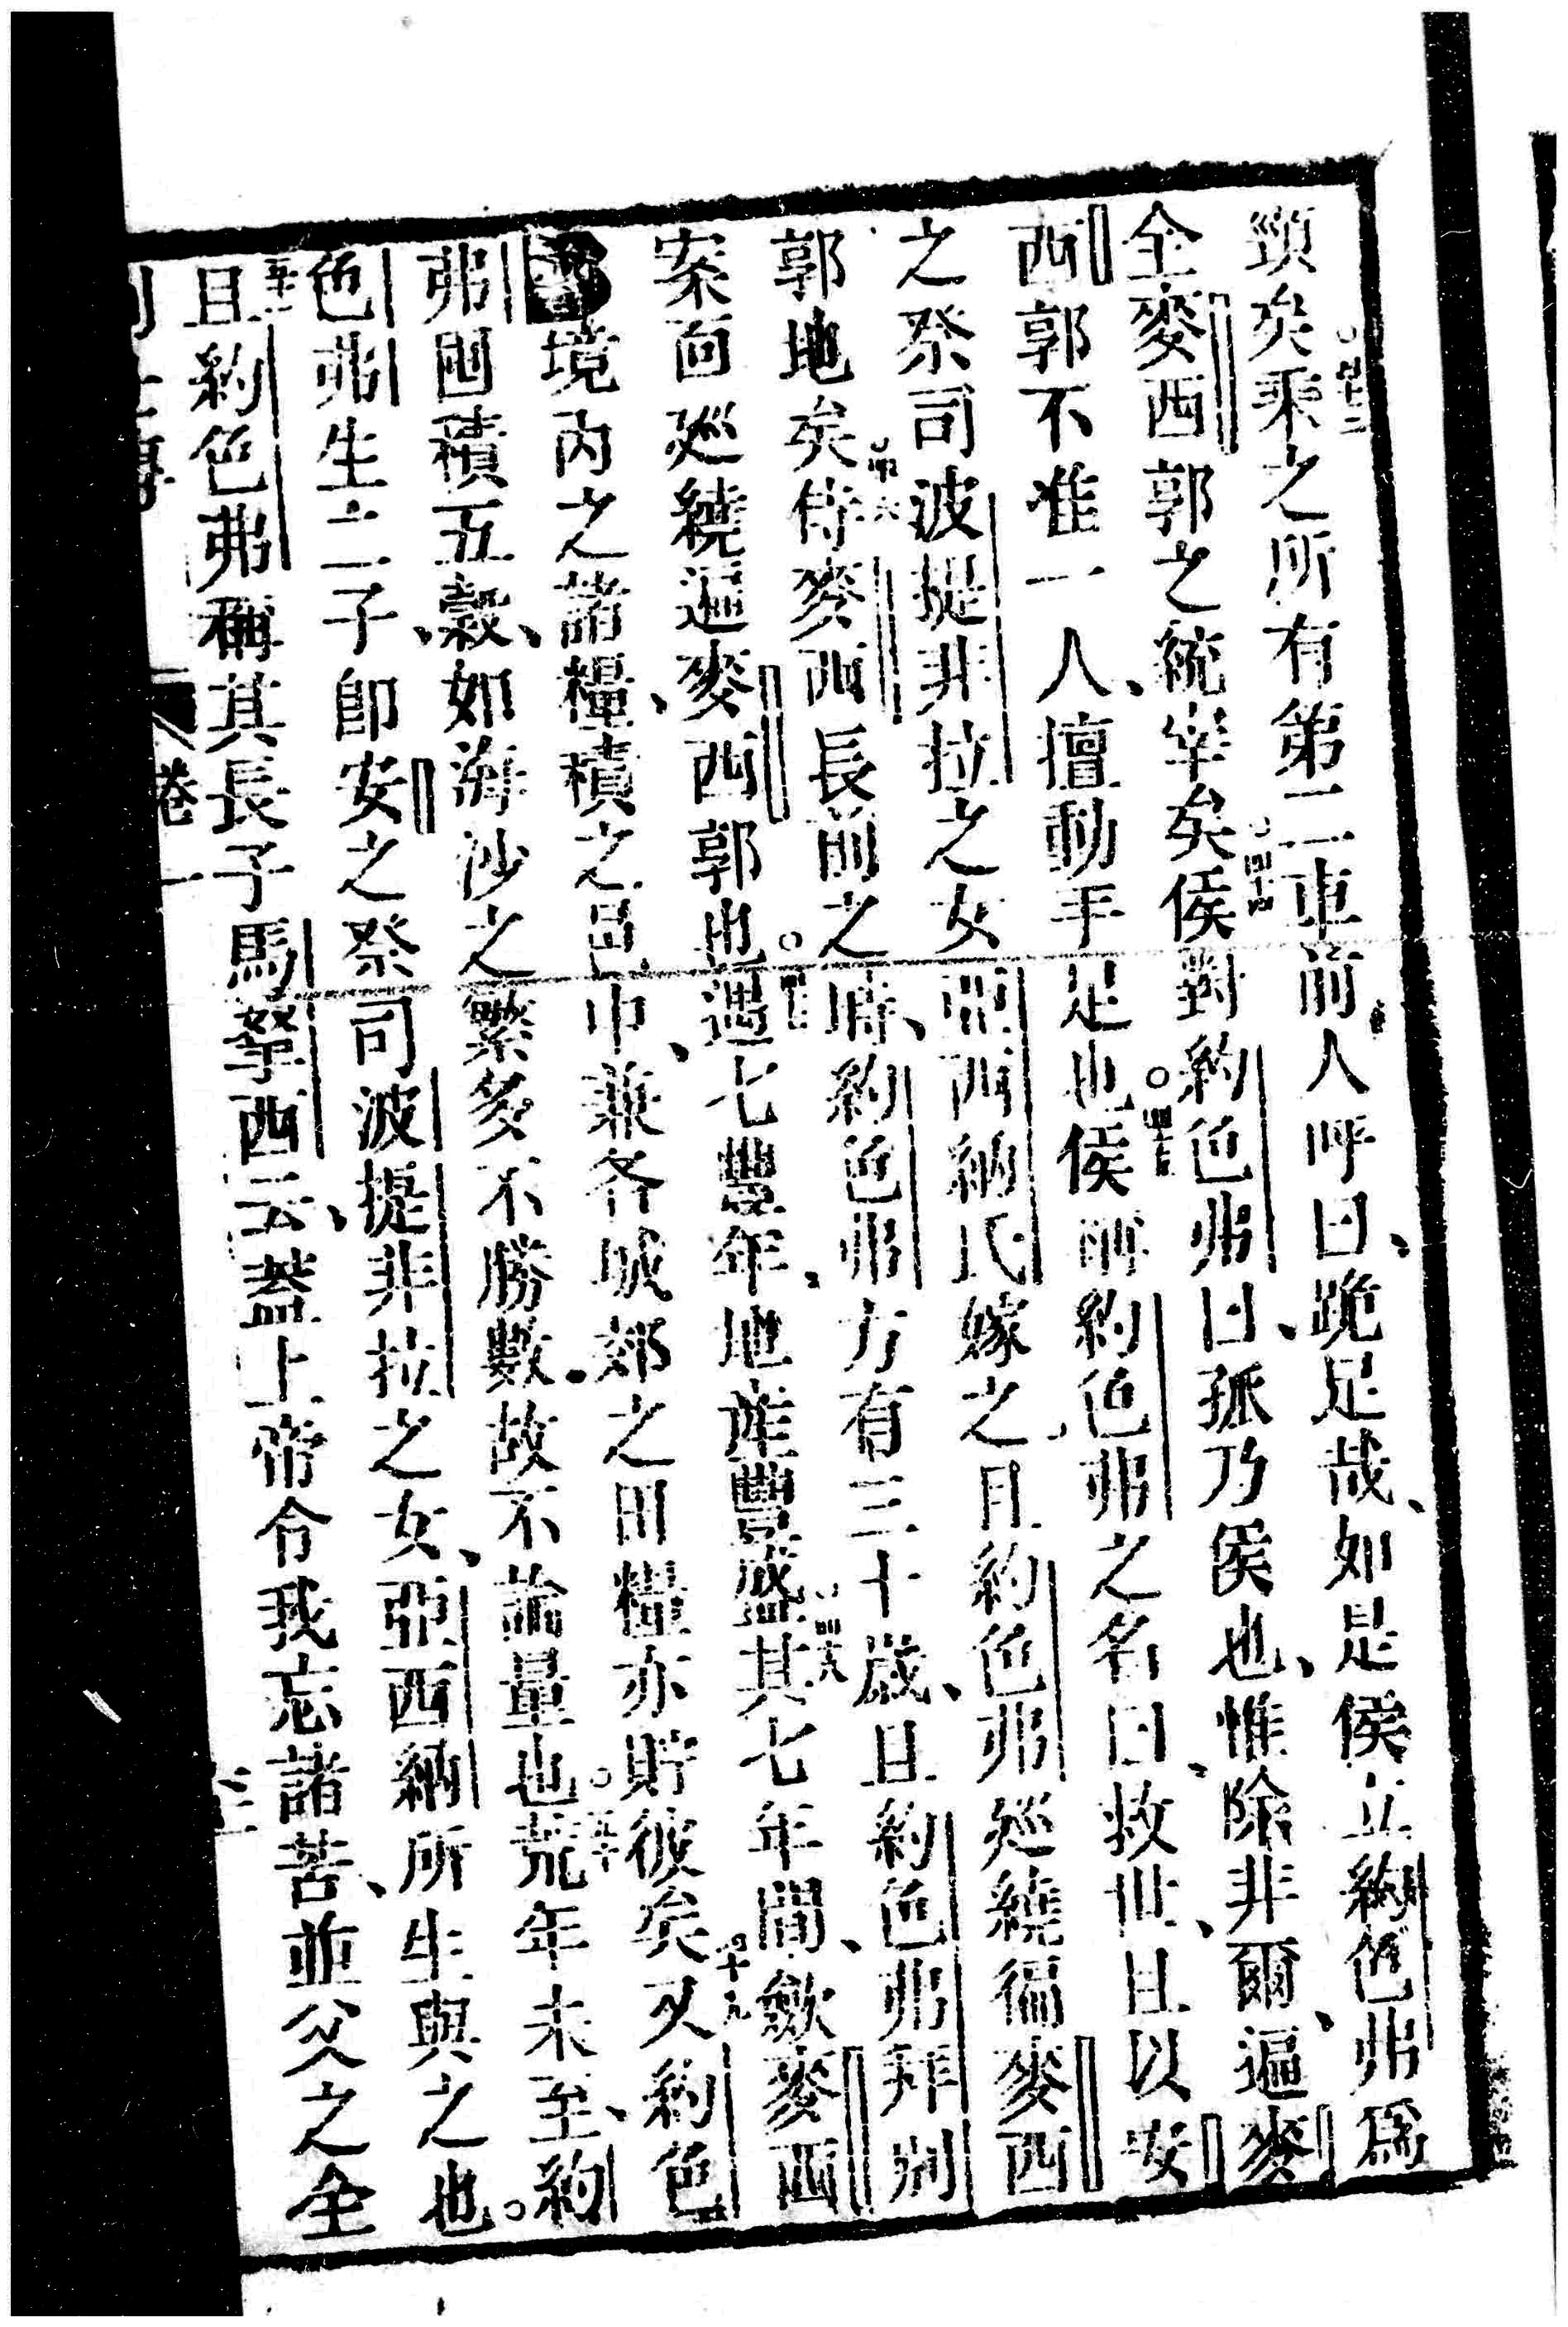 頸矣四十三乘之所有第二車前人呼曰、跪足哉、如是侯立約色弗爲
全麥西郭之統宰矣四十四侯對約色弗曰、孤乃侯也、惟除非爾、遍麥
西郭不准一人、擅動手足也。四十五侯稱約色弗之名曰、救世、且以安
之祭司波提非拉之女亞西納氏嫁之、且約色弗廵繞徧麥西
郭地矣四十六侍麥西長前之時、約色弗方有三十歲、且約色弗拜別
案面廵繞遍麥西郭也。四十七遇七豐年、地產豐盛四十八其七年間、斂麥西
國境內之諸糧、積之邑中、兼各城郊之田糧亦貯彼矣四十九又約色
弗囤積五穀、如海沙之繁多不勝數、故不論量也。五十荒年未至、約
色弗生二子、卽安之祭司波提非拉之女、亞西納所生與之也。
五十一且約色弗稱其長子馬拏西云、蓋上帝令我忘諸苦、並父之全
卷一